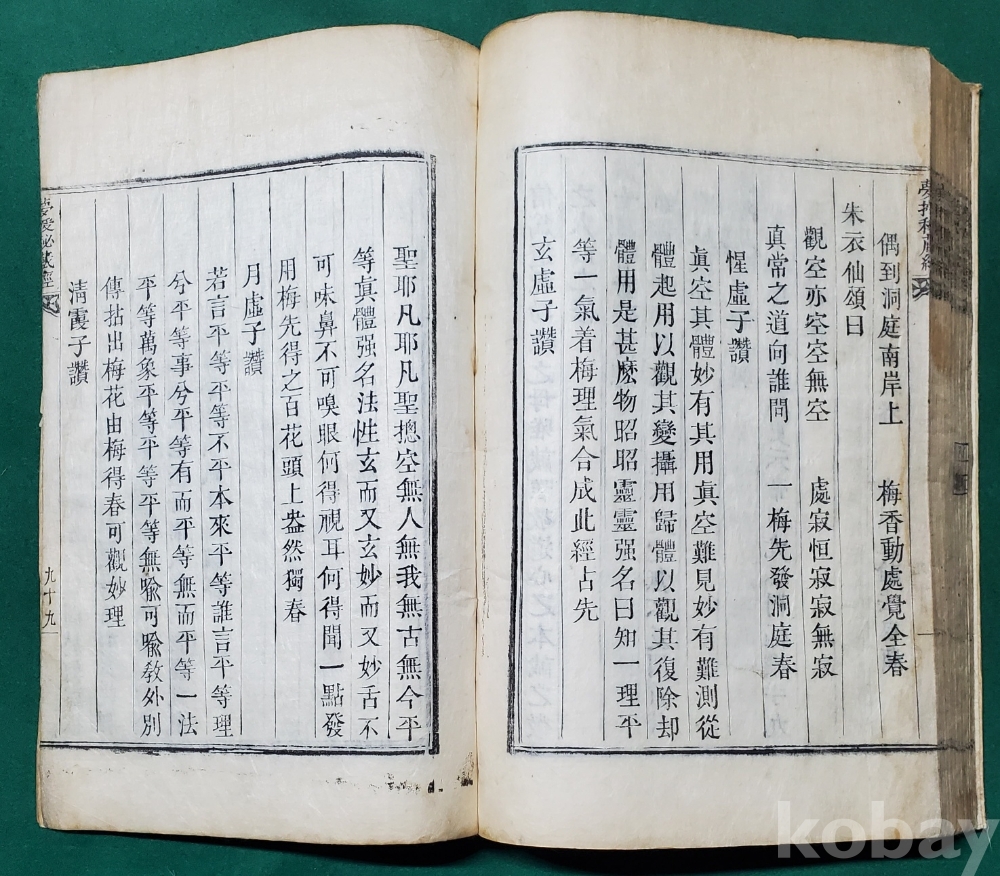 偶到洞庭南岸上 梅香動處覺全春
朱衣仙頌曰
觀空亦空空無空 處寂恒寂寂無寂
真常之道向誰問 一梅先發洞庭春
惺虛子讚
眞空其體妙有其用眞空難見妙有難測從
體起用以觀其變攝用歸體以觀其復除却
體用是甚麽物昭昭靈靈强名曰知一理平
等一氣着梅理氣合成此經占先
玄虛子讚
聖耶凡耶凡聖摠空無人無我無古無今平
等眞體强名法性玄而又玄妙而又妙舌不
可味鼻不可嗅眼何得視耳何得聞一點發
用梅先得之百花頭上盎然獨春
月虛子讚
若言平等平等不平本來平等誰言平等理
兮平等事兮平等有而平等無而平等一法
平等萬象平等平等平等無喩可喩敎外別
傳拈出梅花由梅得春可觀妙理
淸霞子讚
九十九
kobay